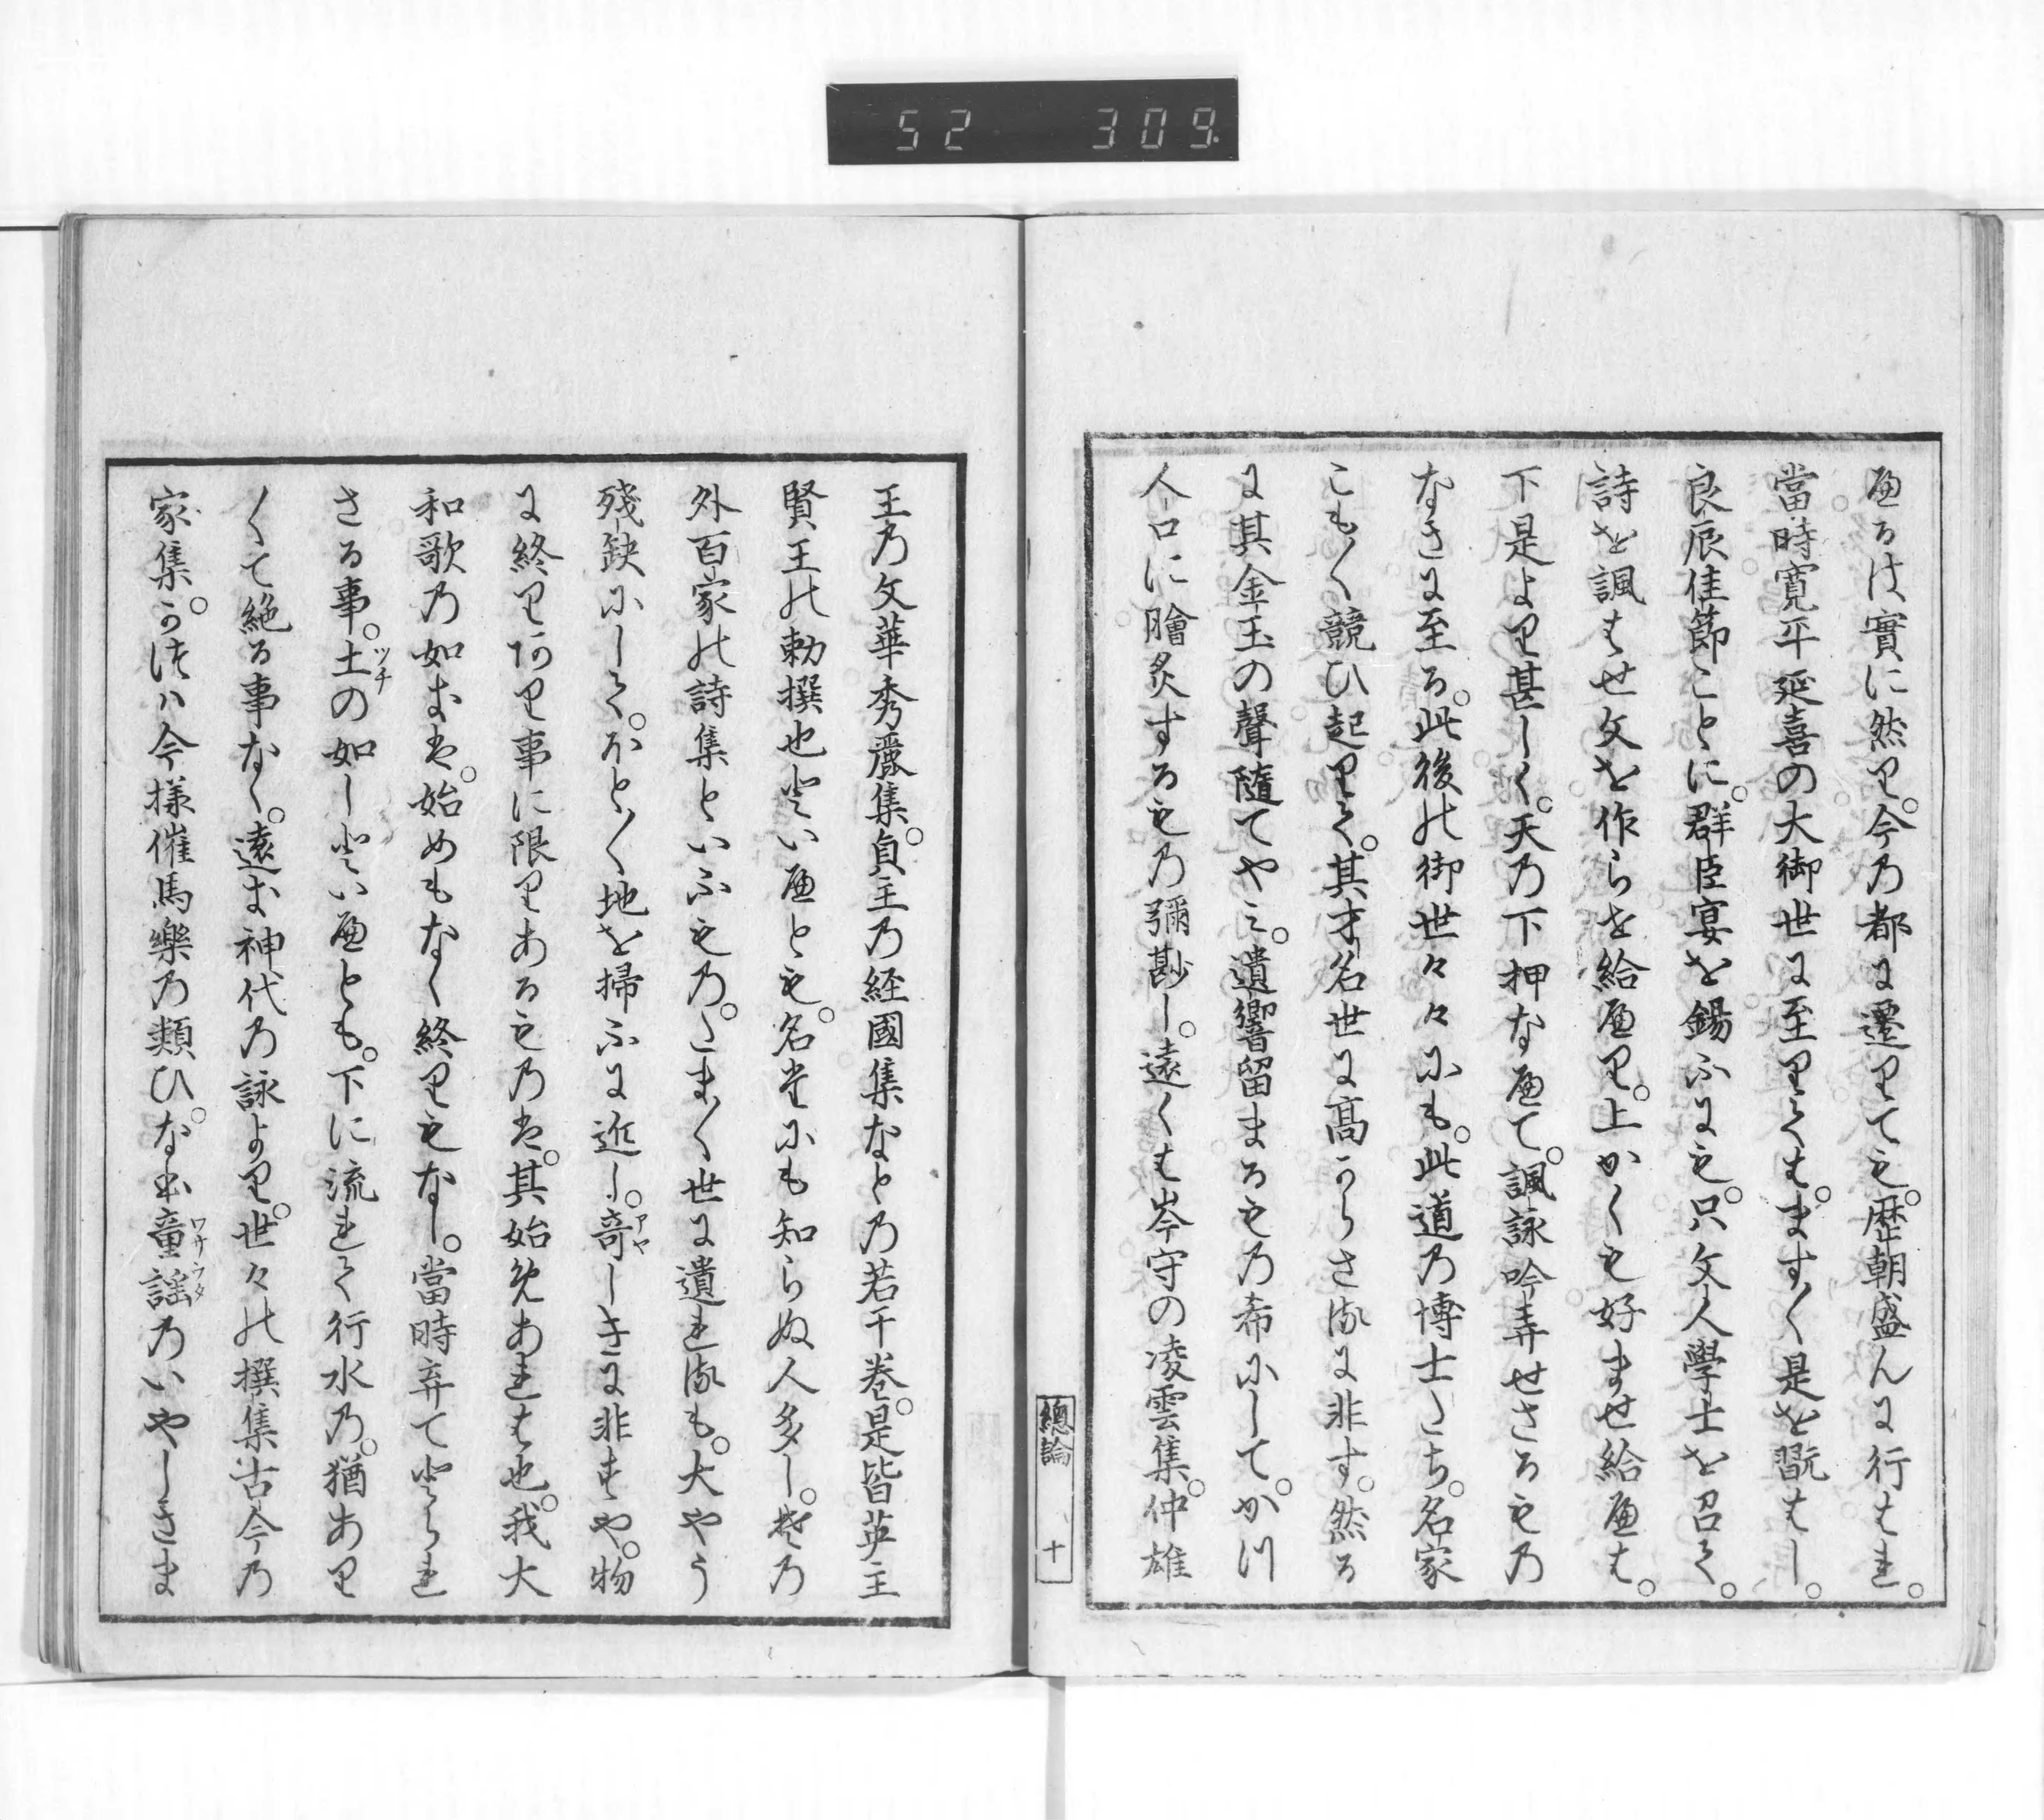 52 309.
へるは實に然り。今乃都に遷りても。歴朝盛んに行はれ。
當時寛平延喜の大御世に至りては。ます〱是を翫はし。
良辰佳節ことに。群臣宴を錫ふにも。只文人學士を召て。
詩を諷はせ文を作らせ給へり。上かくも好ませ給へは。
下是より甚しく。天乃下押なへて。諷詠吟弄せさるもの
なきに至る。此後の御世々々にも。此道乃博士たち。名家
こも〱競ひ起りて。其才名世に高からさるに非す。然る
に其金玉の聲随てやみ。遺響留まるもの希にして。かつ
人口に膾炙するもの彌尠し。遠くは岑守の凌雲集。仲雄
總論 十
王乃文華秀麗集。貞主乃経國集なと乃若干巻。是皆英主
賢王の勅撰也といへとも。名たにも知らぬ人多し。其乃
外百家の詩集といふもの。たま〱世に遺れるも。大やう
残缺にして。ほと〱地を掃ふに近し。奇しきに非すや。物
アヤ
に終り有り事に限りあるものは。其始めあれは也。我大
和歌乃如きは。始めもなく終りもなし。當時弃てとられ
さる事。土の如しといへとも。下に流れて行水乃。猶あり
ツチ
〱て絶る事なく。遠き神代乃詠より。世々の撰集古今乃
家集。かつは今様催馬樂乃類ひ。なへ童謡乃いやしきま
ワサウタ